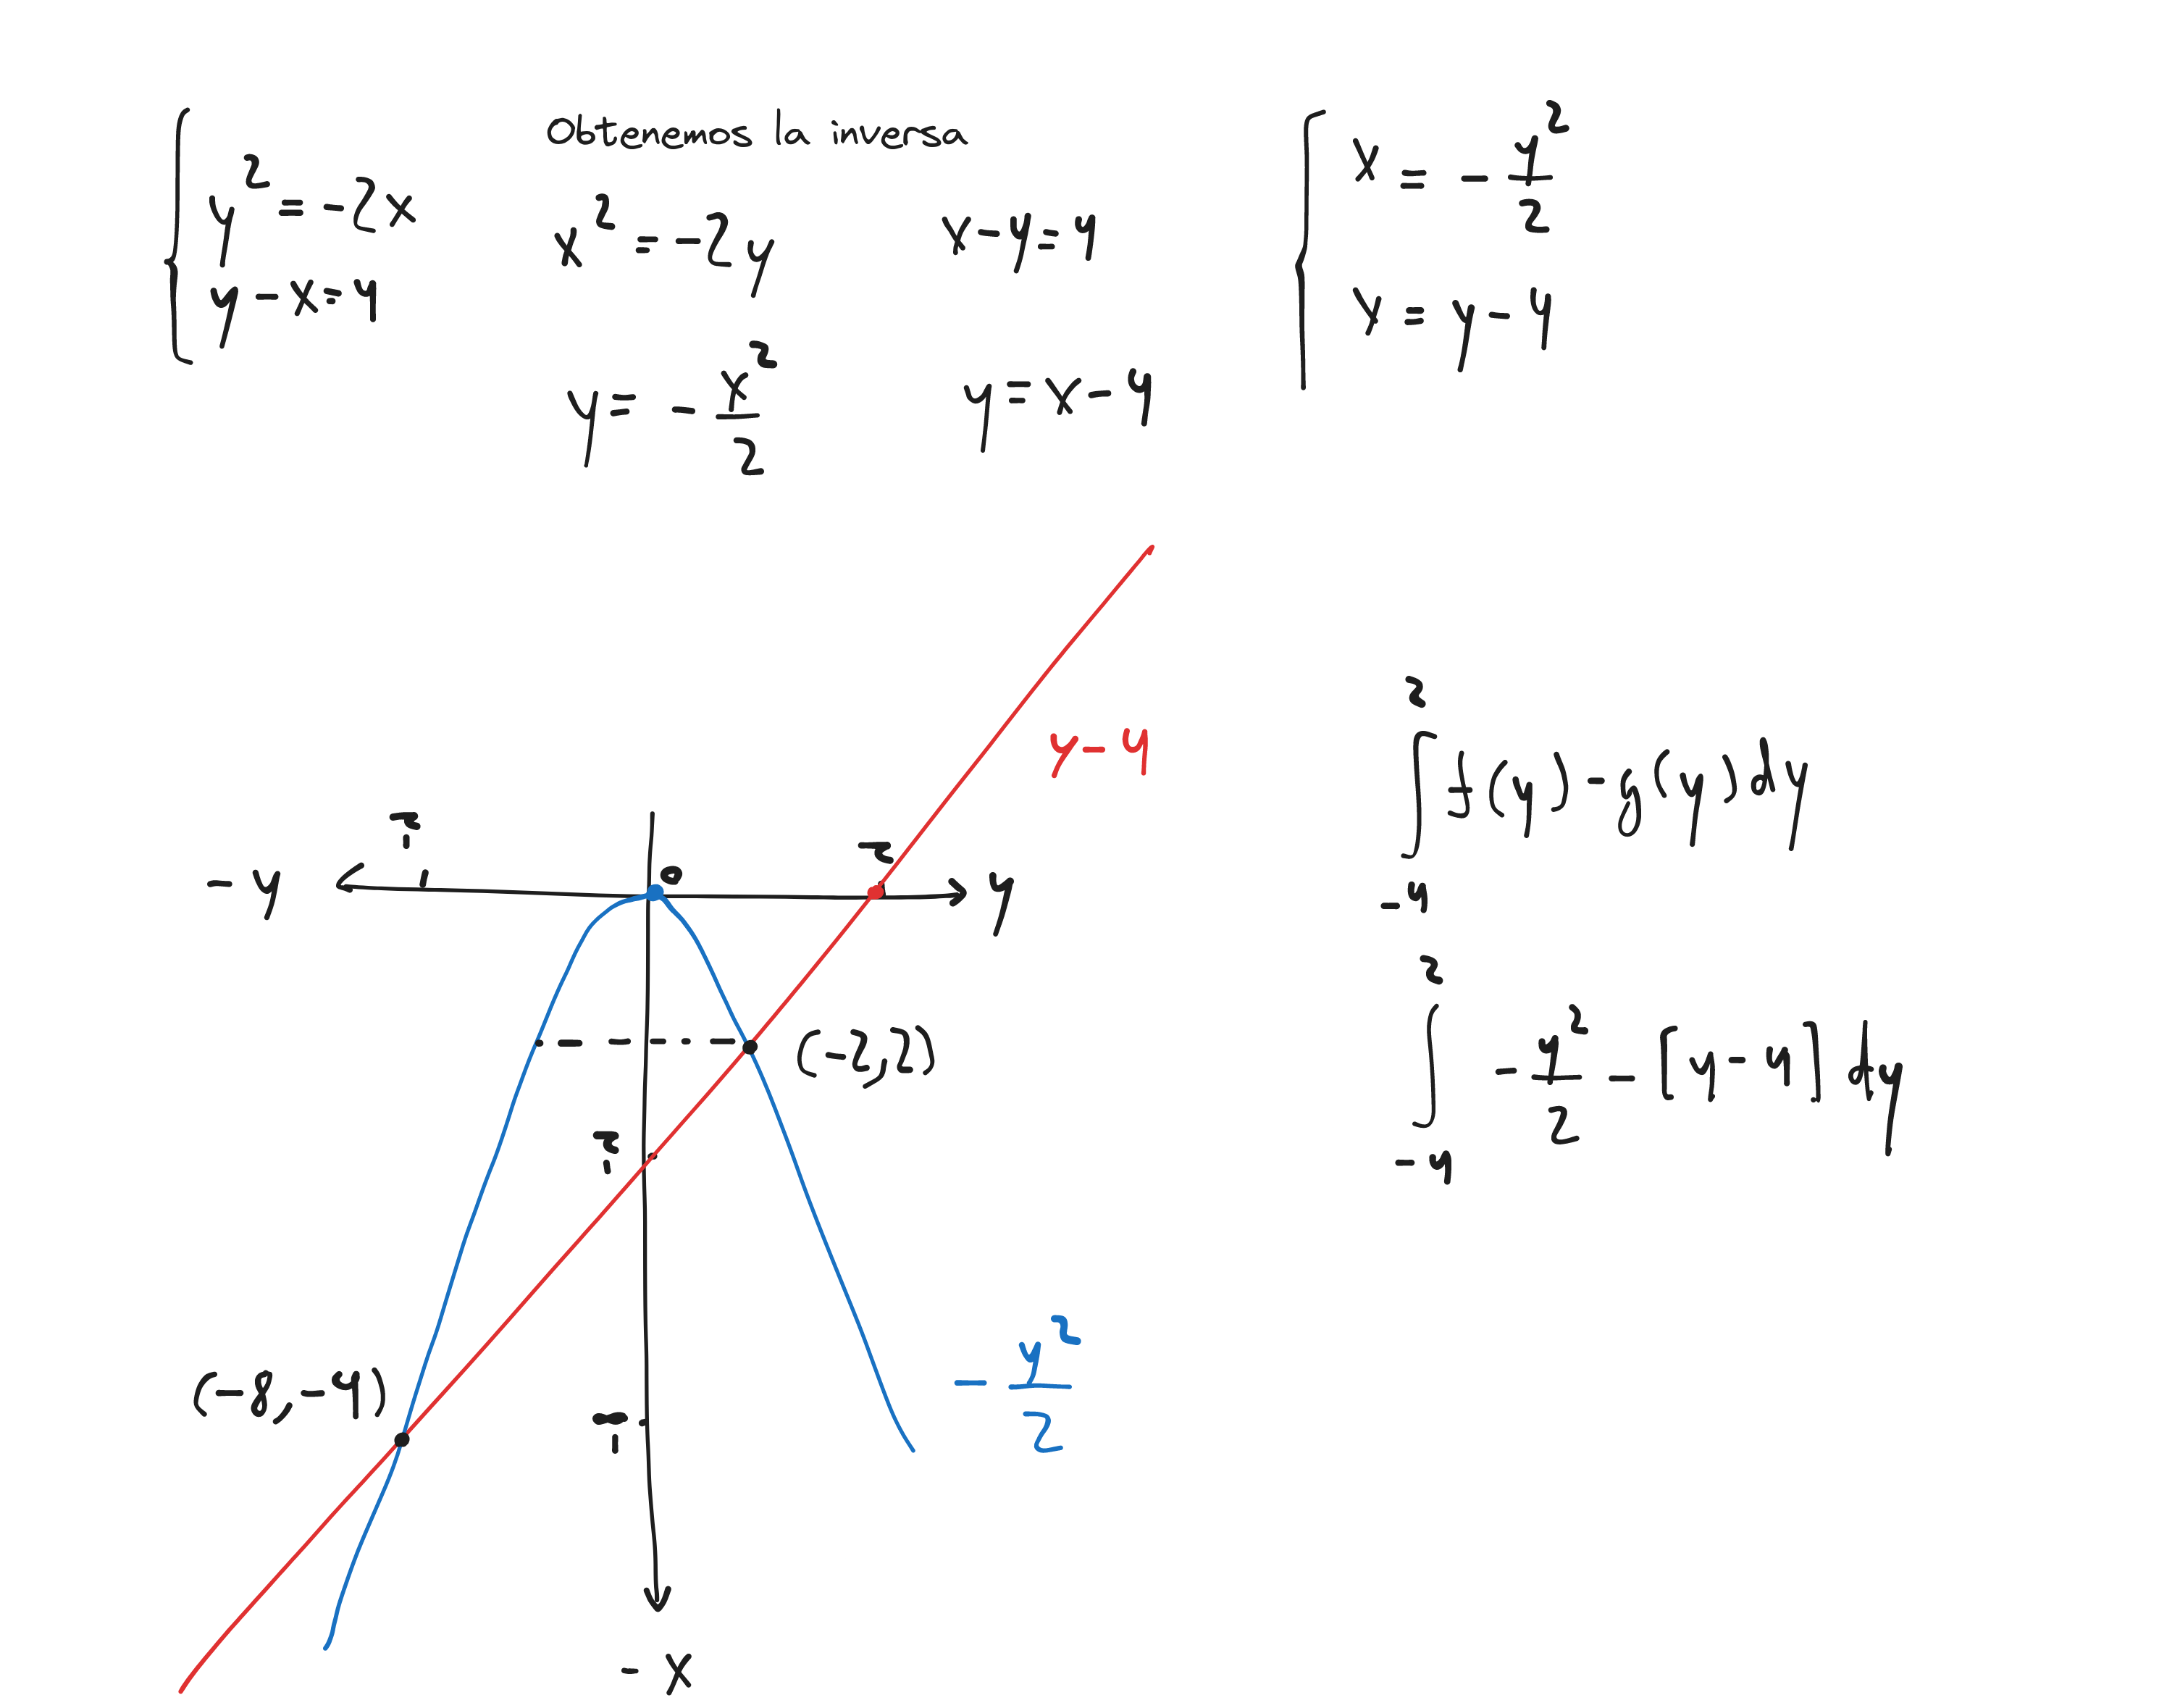 y² = -2x
y - x = 4
Obtenemos la inversa
x² = -2y
x - y = 4
y = - x²/2
y = x - 4
x = - y²/2
x = y - 4
y - 4
- y
0
y
(-2, 2)
(-8, -4)
- y²/2
- x
∫_{-4}^{2} f(y) - g(y) dy
∫_{-4}^{2} - y²/2 - [y - 4] dy